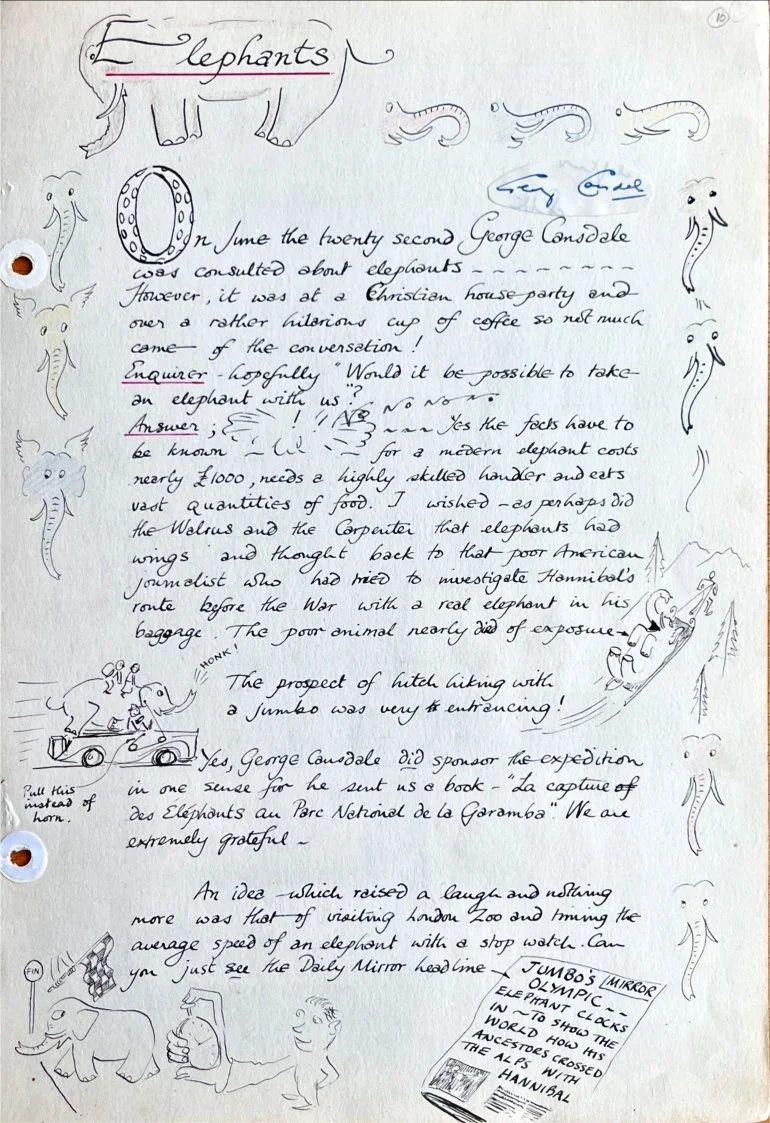 10
Elephants
On June the twenty second George Cansdale
was consulted about elephants - - - - - - - -
However, it was at a Christian house party and
over a rather hilarious cup of coffee so not much
came of the conversation!
Enquirer - hopefully "Would it be possible to take
an elephant with us"?
Answer ; ! ! No No No No
- - - Yes the facts have to
be known for a modern elephant costs
nearly £1000, needs a highly skilled handler and eats
vast quantities of food. I wished - as perhaps did
the Walrus and the Carpenter that elephants had
wings and thought back to that poor American
journalist who had tried to investigate Hannibal's
route before the War with a real elephant in his
baggage. The poor animal nearly died of exposure
HONK!
The prospect of hitch hiking with
a jumbo was very entrancing!
Pull this
instead of
horn.
Yes, George Cansdale did sponsor the expedition
in one sense for he sent us a book - "La capture
des Eléphants au Parc National de la Garamba". We are
extremely grateful -
An idea - which raised a laugh and nothing
more was that of visiting London Zoo and timing the
average speed of an elephant with a stop watch. Can
you just see the Daily Mirror headline
FIN
JUMBO'S MIRROR
OLYMPIC - -
ELEPHANT CLOCKS
IN - TO SHOW THE
WORLD HOW HIS
ANCESTORS CROSSED
THE ALPS WITH
HANNIBAL